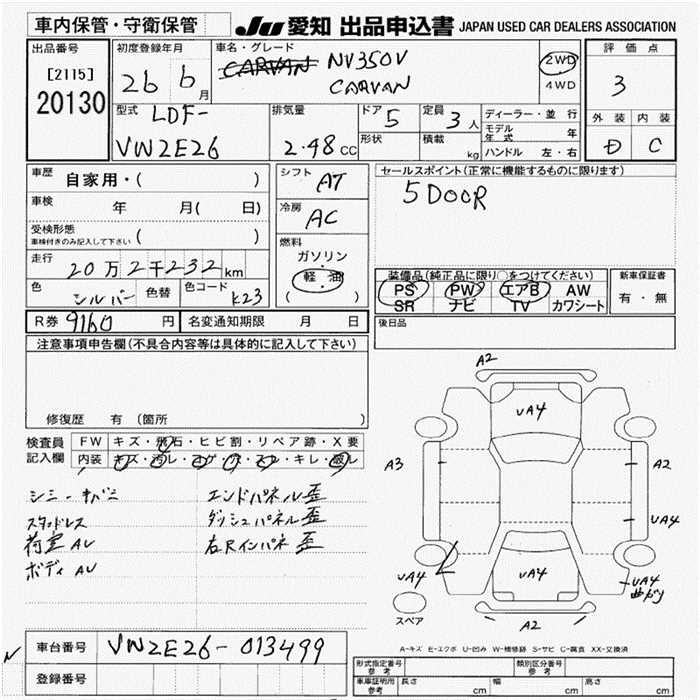 車内保管・守衛保管
JU 愛知 出品申込書 JAPAN USED CAR DEALERS ASSOCIATION
出品番号
[2115]
20130
初度登録年月
26 6月
車名・グレード
CARVAN NV350V
CARVAN
2WD
4WD
評価点
3
外装 内装
D C
型式 LDF-
VW2E26
排気量
2.48 CC
ドア 5
形状
定員 3人
積載 kg
ディーラー・並行
モデル年式 年
ハンドル 左・右
車歴 自家用・( )
車検 年 月(日)
受検形態
車検付きのみ記入して下さい ( )
走行 20万2千232km
色 シルバー 色替 色コード K23
シフト AT
冷房 AC
燃料
ガソリン
軽・油
( )
セールスポイント(正常に機能するものに限ります)
5DOOR
装備品(純正品に限り○をつけてください)
PS PW エアB AW
SR ナビ TV カワシート
新車保証書
有・無
R券 9160円 名変通知期限 月 日
後日品
注意事項申告欄(不具合内容等は具体的に記入して下さい)
修復歴 有 (箇所 )
検査員
記入欄
FW キズ・飛石・ヒビ割・リペア跡・X要
内装 キズ・汚レ・コゲ・穴・スレ・キレ・破レ
エンドパネル歪
スタッドレス ダッシュパネル歪
荷室AU 右Rインパネ歪
ボディAU
A2
UA4
A3
A2
UA4
UA4
UA4
UA4
曲がり
スペア
A2
A-キズ E-エクボ U-凹み W-補修跡 S-サビ C-腐食 XX-交換済
車台番号 VW2E26-013499
登録番号
形式指定番号
参考
類別区分番号
参考
車庫証明用
参考
長さ cm 幅 cm 高さ cm